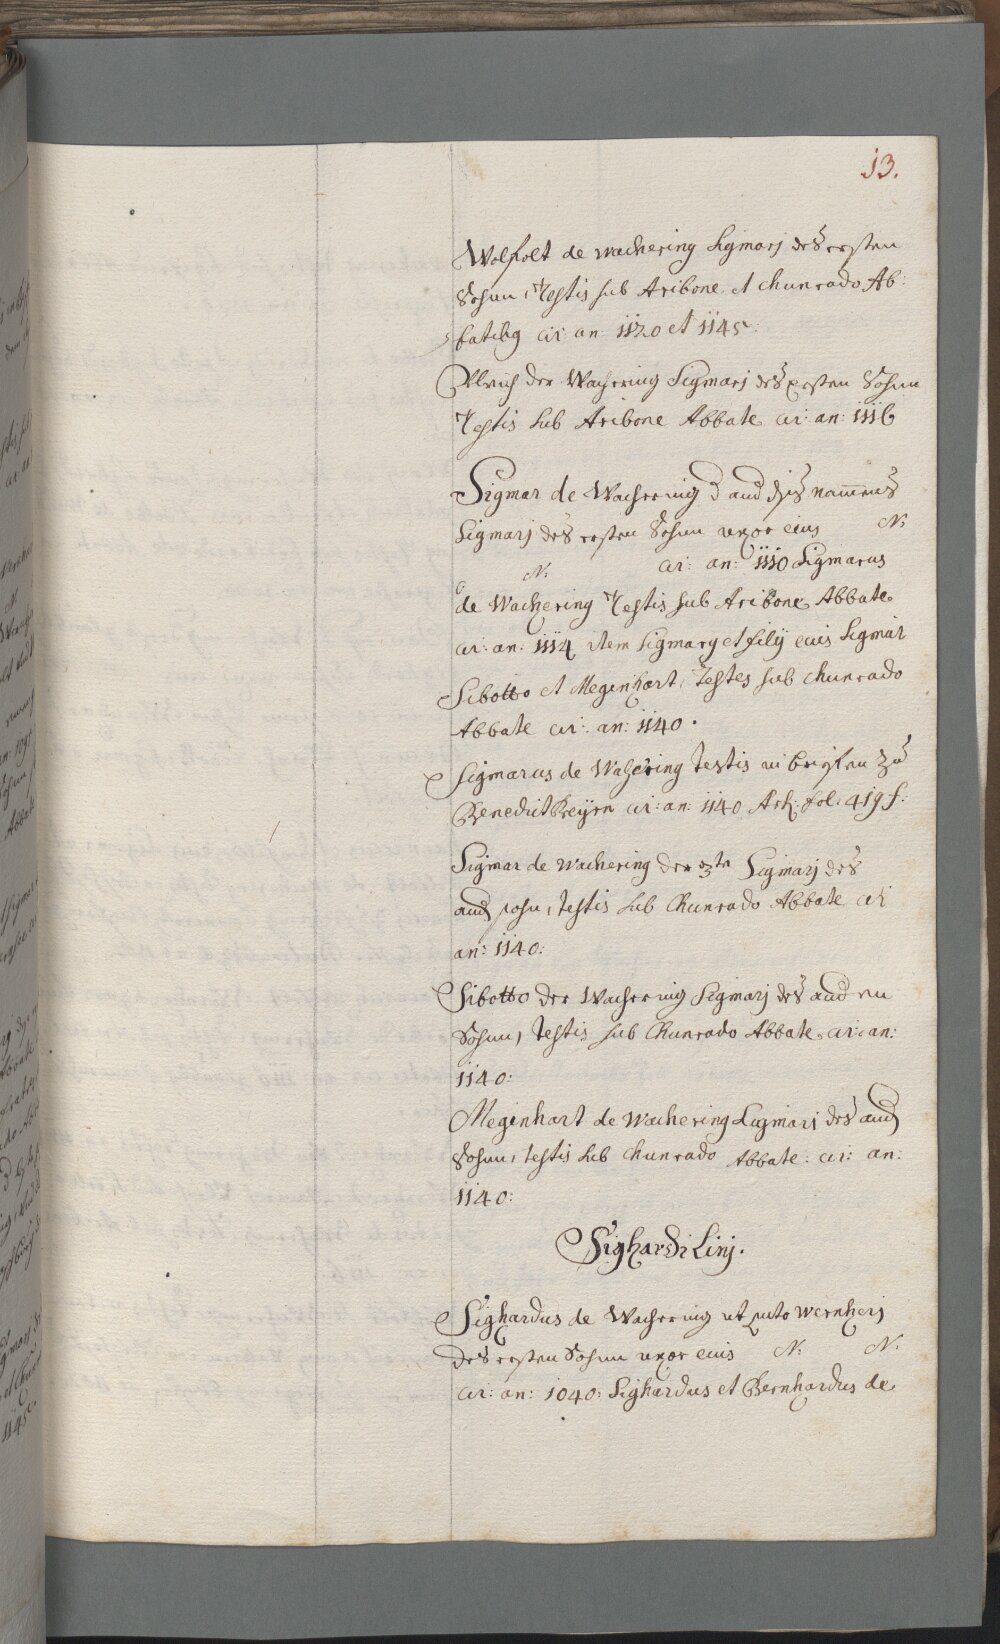 13.
Wolfolt de Wachering Sigmarj des ersten
Sohnn, Testis sub Aribone et Chunrado Ab:
batibg cir: an: 1120 et 1145:
Ulrich der Wachering Sigmarj des Ersten Sohnn
Testis sub Aribone Abbate cir: an: 1116
Sigmar de Wachering d and diß nammens
Sigmarj des ersten Sohnn uxor eius N:
N: cir: an: 1110 Sigmarus
de Wachering Testis sub Aribone Abbate
cir: an: 1114 item Sigmarg et filij eius Sigmar
Sibotto et Megenhart, Testes sub Chunrado
Abbate cir: an: 1140.
Sigmarus de Wahering testis in brifen zu
Benedictbeyrn cir: an: 1140 Ark: fol: 419 f:
Sigmar de Wachering der 3te Sigmarj des
and sohn, testis sub Chunrado Abbate cir
an: 1140:
Sibotto der Wachering Sigmarj des andren
Sohnn, testis sub Chunrado Abbate cir: an:
1140:
Megenhart de Wachering Sigmarj des and
Sohnn, testis sub Chunrado Abbate: cir: an:
1140:
Sighardi Linj.
Sighardus de Wachering ut puto Wernherj
des ersten Sohnn uxor eius N: N:
cir: an: 1040: Sighardus et Bernhardus de